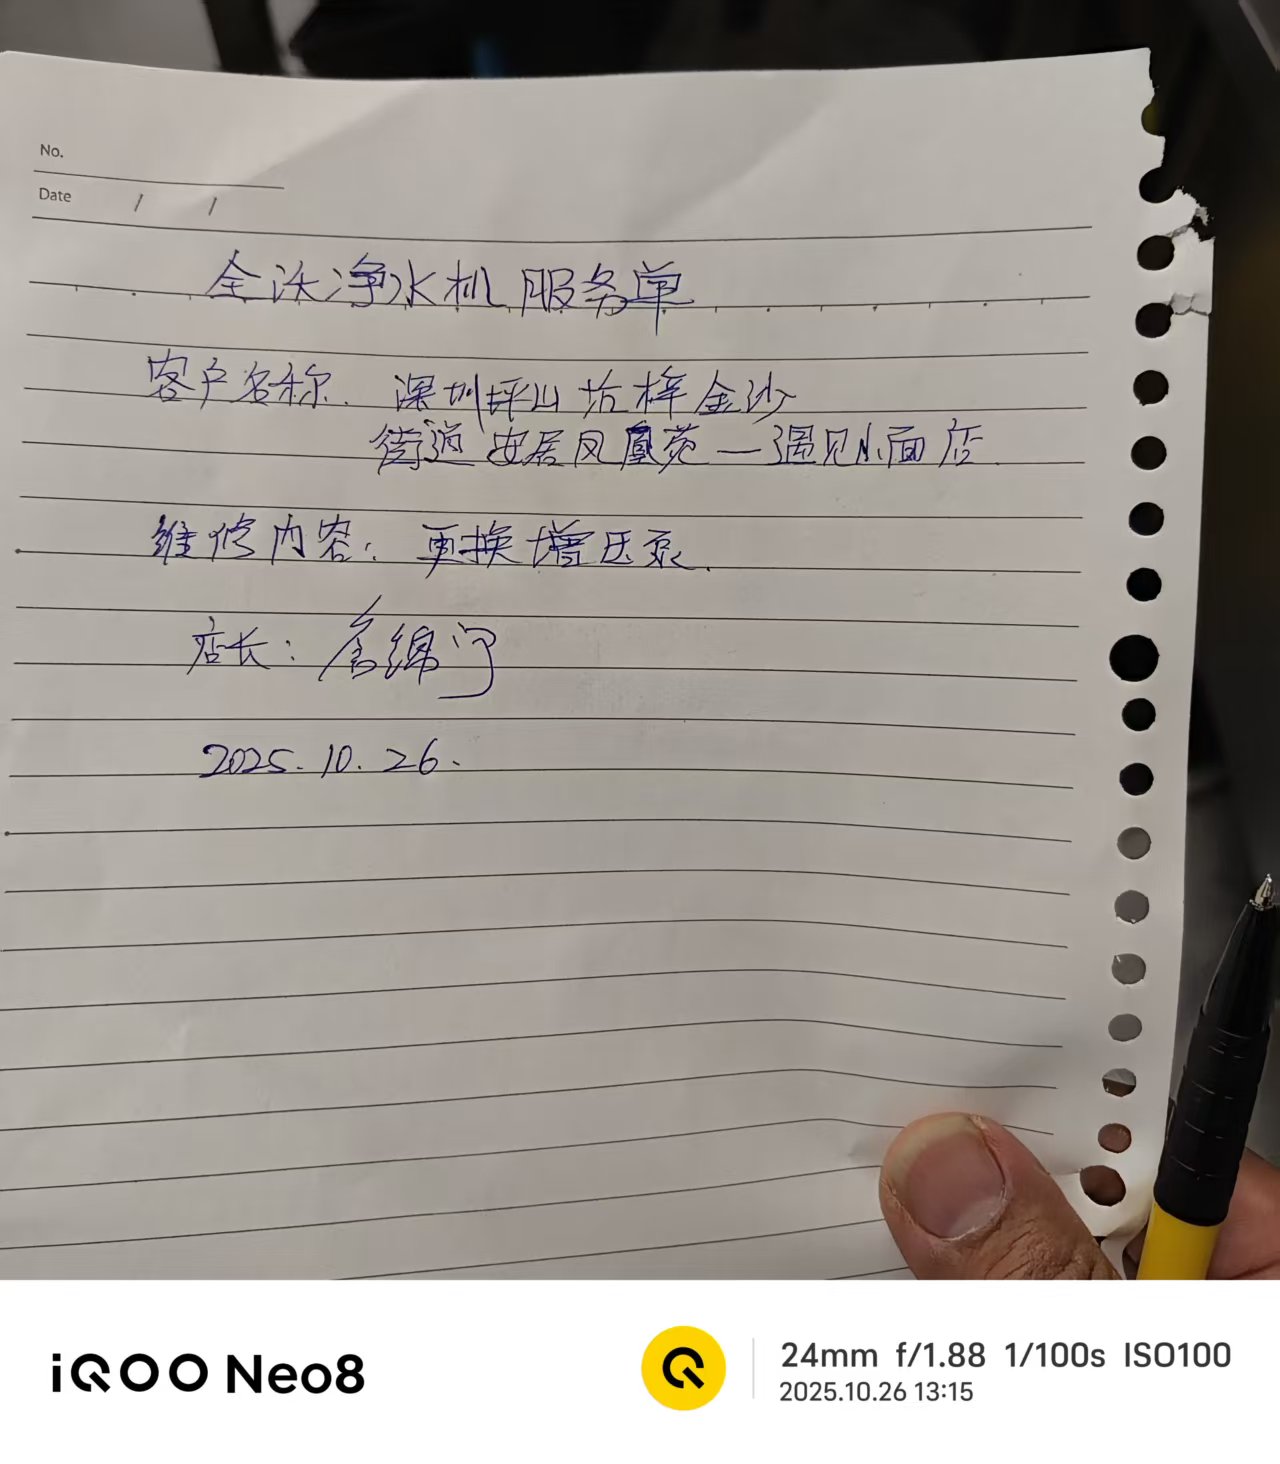 No.
Date / /
全沃净水机服务单
客户名称. 深圳坪山坑梓金沙
街道安居凤凰苑一遇见小面店.
维修内容: 更换增压泵.
店长:
2025.10.26.
iQOO Neo8
24mm f/1.88 1/100s ISO100
2025.10.26 13:15